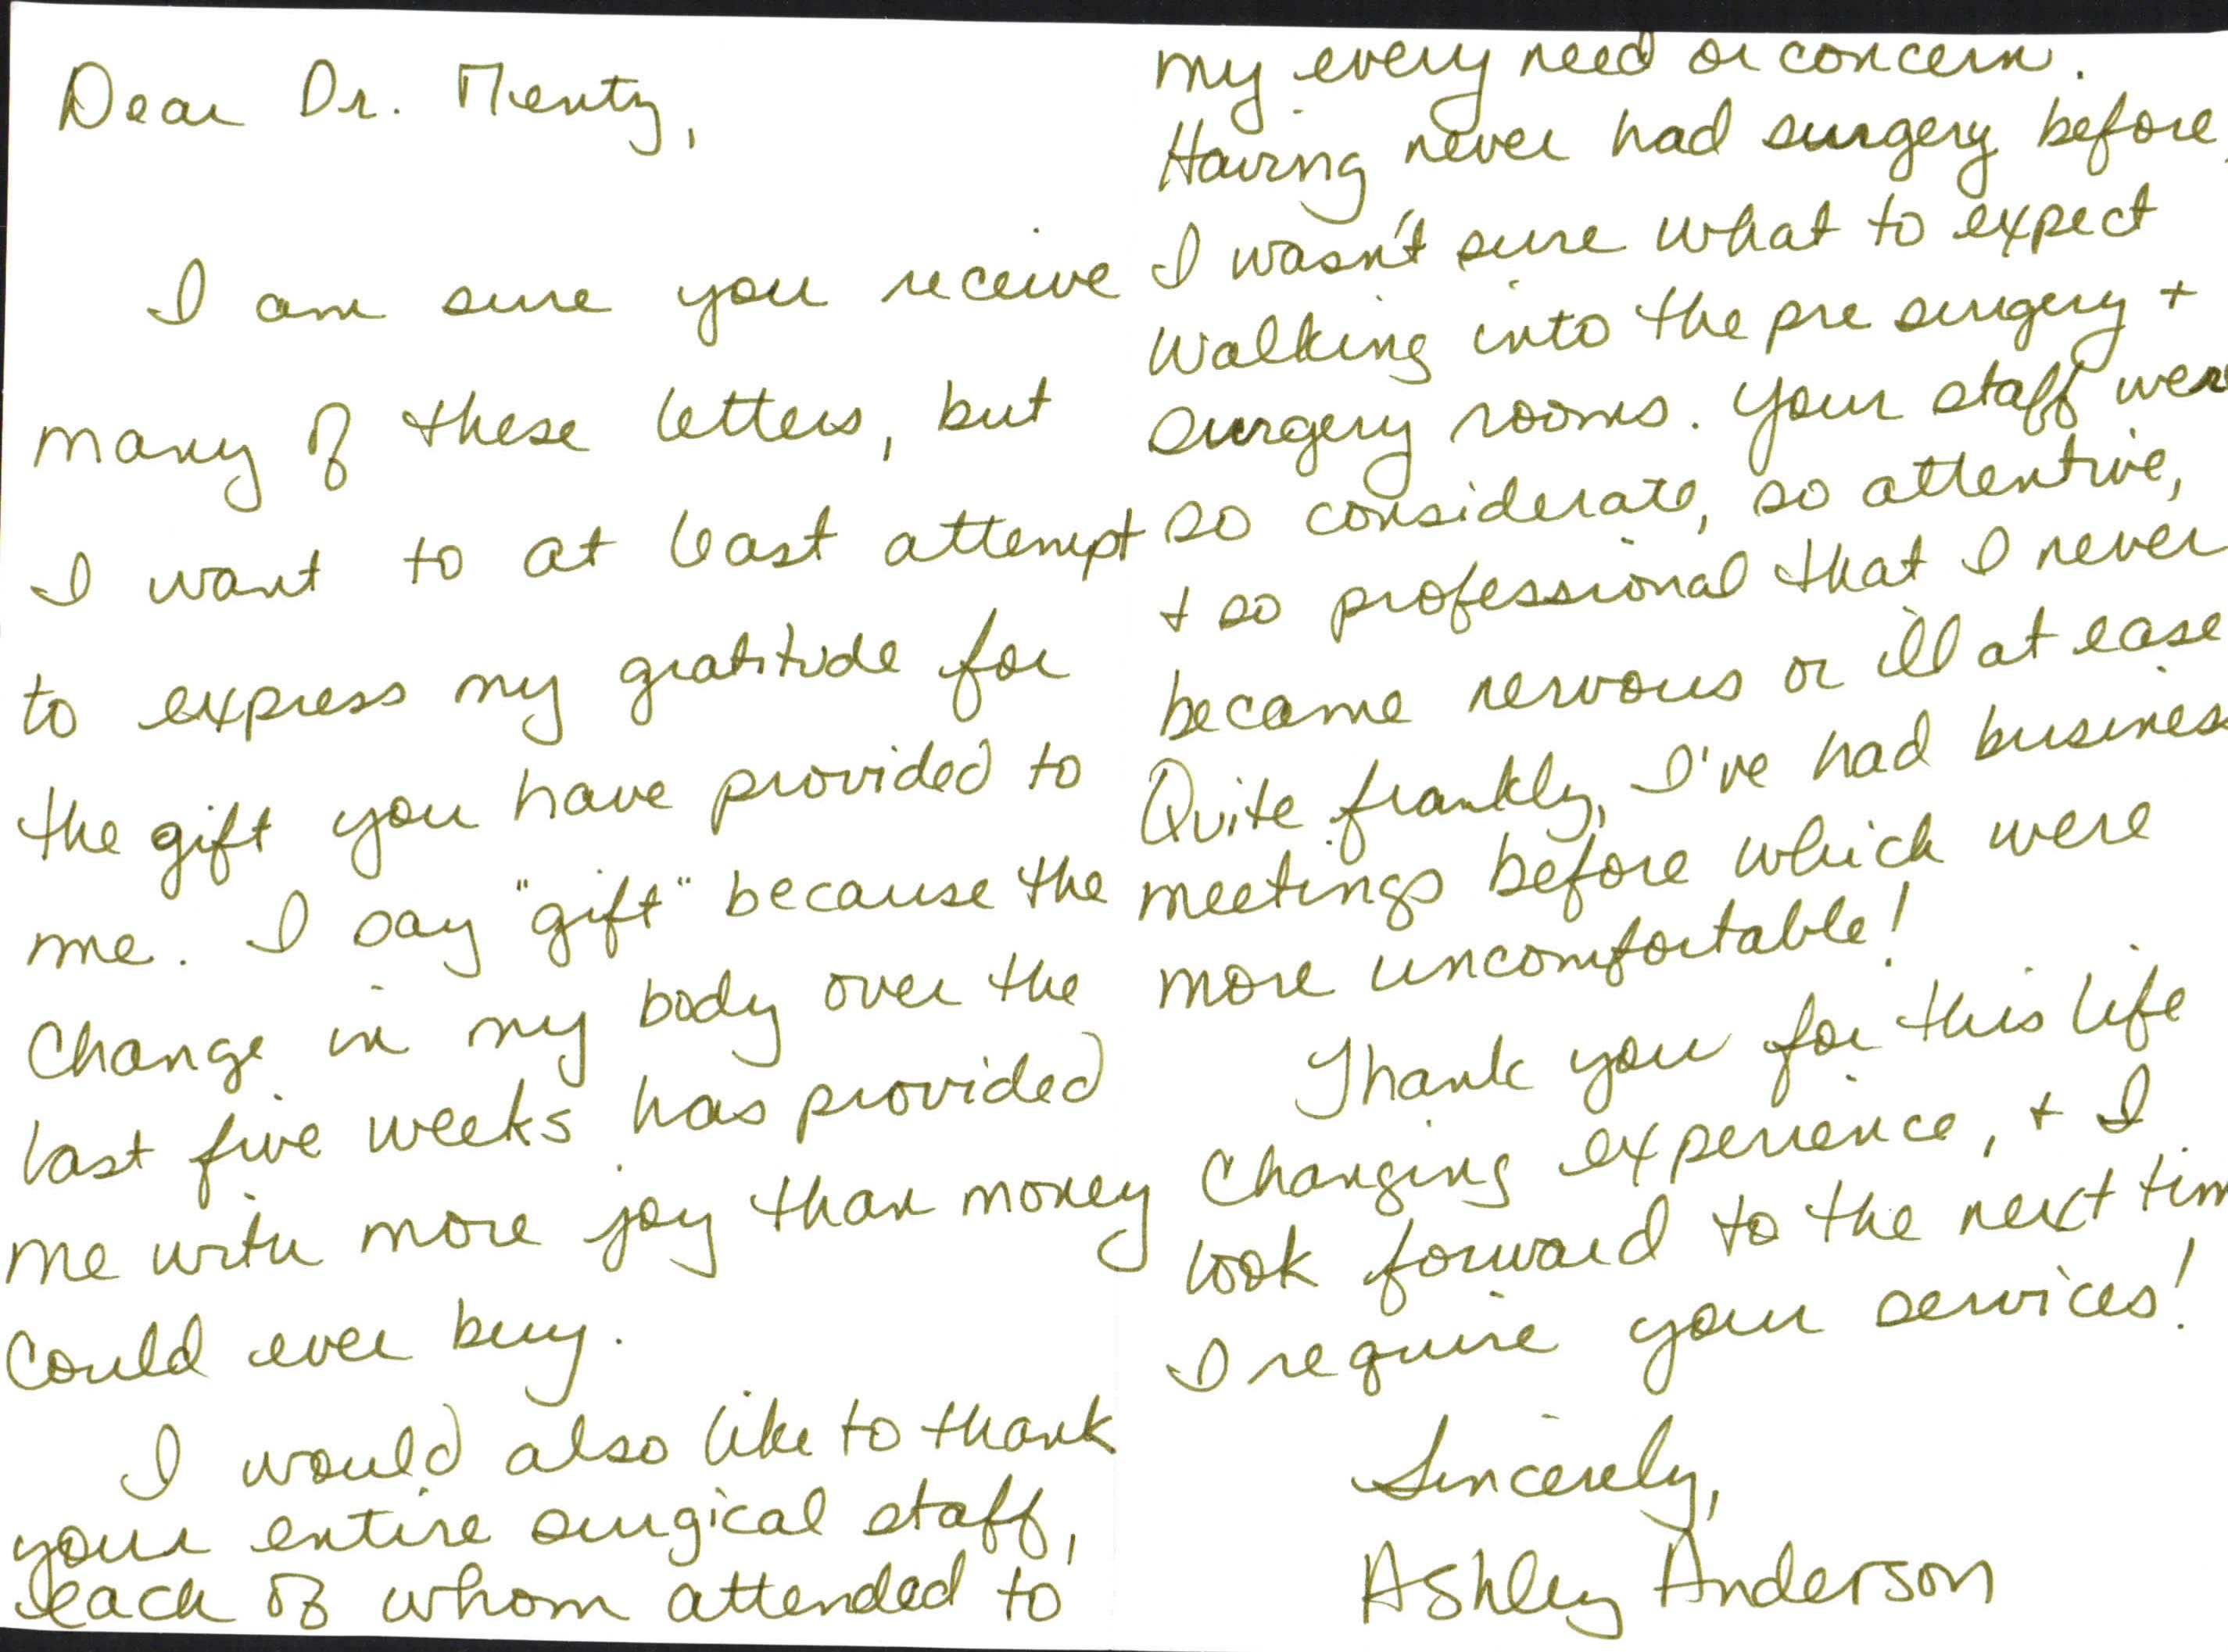 Dear Dr. Mentz,
I am sure you receive
many of these letters, but
I want to at least attempt
to express my gratitude for
the gift you have provided to
me. I say "gift" because the
change in my body over the
last five weeks has provided
me with more joy than money
could ever buy.
I would also like to thank
your entire surgical staff,
each of whom attended to
my every need or concern.
Having never had surgery before,
I wasn't sure what to expect
walking into the pre surgery +
surgery rooms. Your staff wer
so considerate, so attentive,
+ so professional that I never
became nervous or ill at ease
Quite frankly, I've had busines
meetings before which were
more uncomfortable!
Thank you for this life
changing experience, + I
look forward to the next tim
I require your services!
Sincerely,
Ashley Anderson